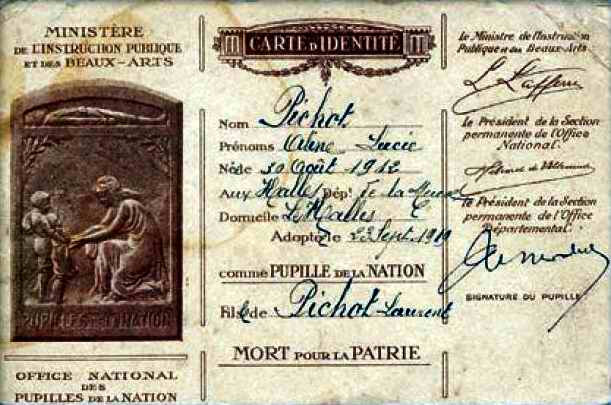 MINISTÈRE
DE L'INSTRUCTION PUBLIQUE
ET DES BEAUX-ARTS
PUPILLES DE LA NATION
OFFICE NATIONAL
DES
PUPILLES DE LA NATION
CARTE D'IDENTITÉ
Nom Pichot
Prénoms Lucie
Née le 30 Août 1912
Aux Halles Dépt de la Meuse
Domicile Les Halles
Adoptée le 23 Sept. 1919
comme PUPILLE DE LA NATION
Fille de Pichot Laurent
MORT POUR LA PATRIE
Le Ministre de l'Instruction
Publique et des Beaux-Arts
Le Président de la Section
permanente de l'Office
National.
le Président de la Section
permanente de l'Office
Départemental.
SIGNATURE DU PUPILLE